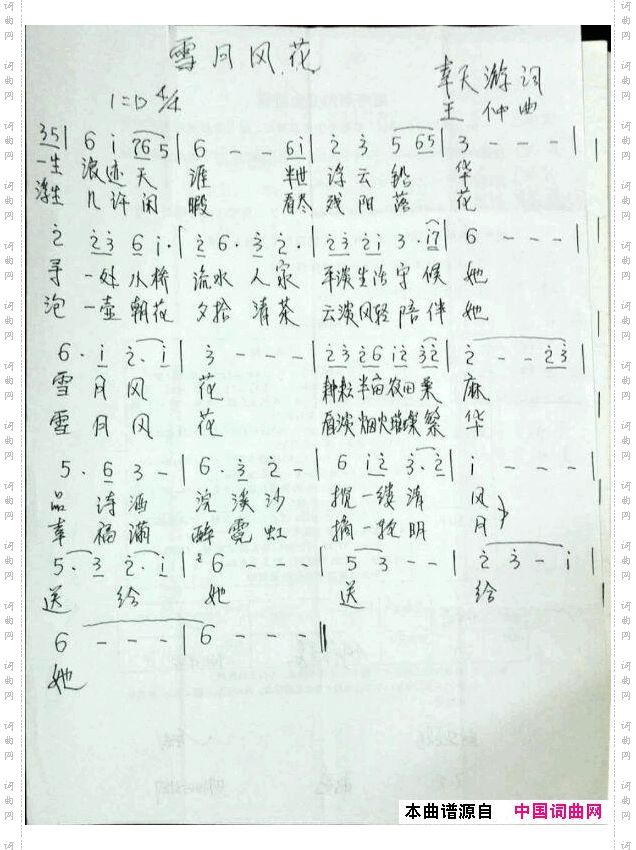 雪月风花
1=D 4/4
辜天游词
王 仲曲
35| 6 i 76 5 | 6 - - 6i | 2 3 5 65 | 3 - - - |
一生 浪迹天 涯 半世 浮云 铅 华
浮生 几许闲 暇 看尽 残阳 落 花
2 23 6 i· | 2 6· 3 2· | 23 2i 3· i7 | 6 - - - |
寻 一处小桥 流水 人家 平淡生活守候 她
泡 一壶朝花 夕拾 清茶 云淡风轻陪伴 她
6· i 2· i | 3 - - - | 23 26 i2 32 | 2 - - 23 |
雪 月 风 花 耕耘半亩农田桑 麻
雪 月 风 花 看淡烟火璀璨繁 华
5· 6 3 - | 6· 3 2 - | 6 i2 3· 2 | i - - - |
品 诗 酒 浣 溪 沙 揽 一缕 清 风
幸 福 满 醉 霓 虹 摘 一轮 明 月
5· 3 2· i | 6 - - - | 5 3 - - | 2 3 - i |
送 给 她 送 给
6 - - - | 6 - - - ‖
她
本曲谱源自 中国词曲网
词曲网